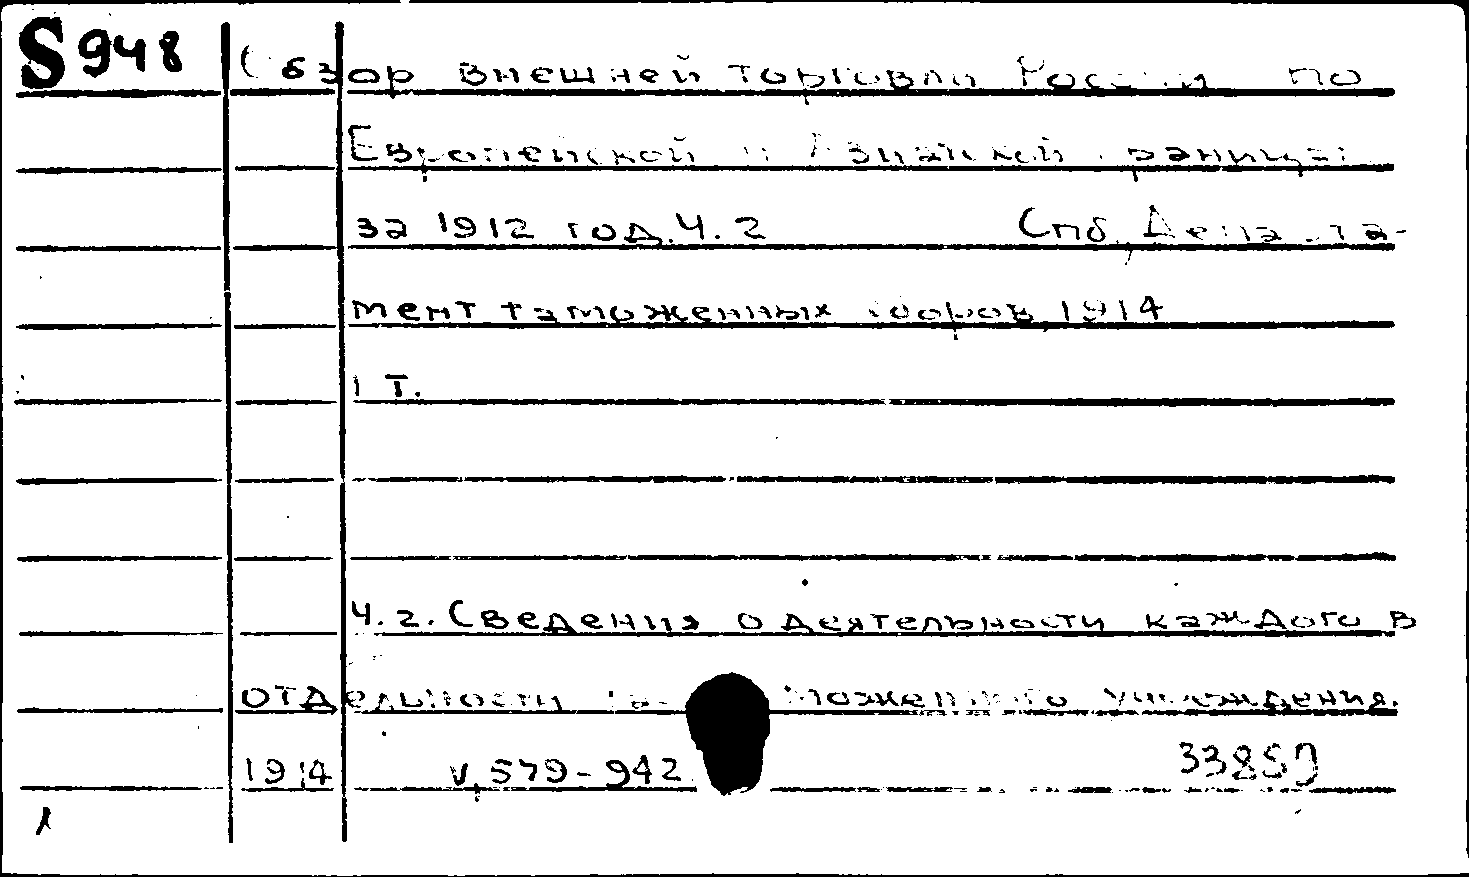 S 948 Обзор внешней торговли России по
Европейской и Азиатской границам
за 1912 год. Ч. 2 Спб, Департа-
мент таможенных сборов, 1914
1 т.
Ч. 2. Сведения о деятельности каждого в
отдельности та- моженного учреждения.
1914 V, 579-942 33859
1